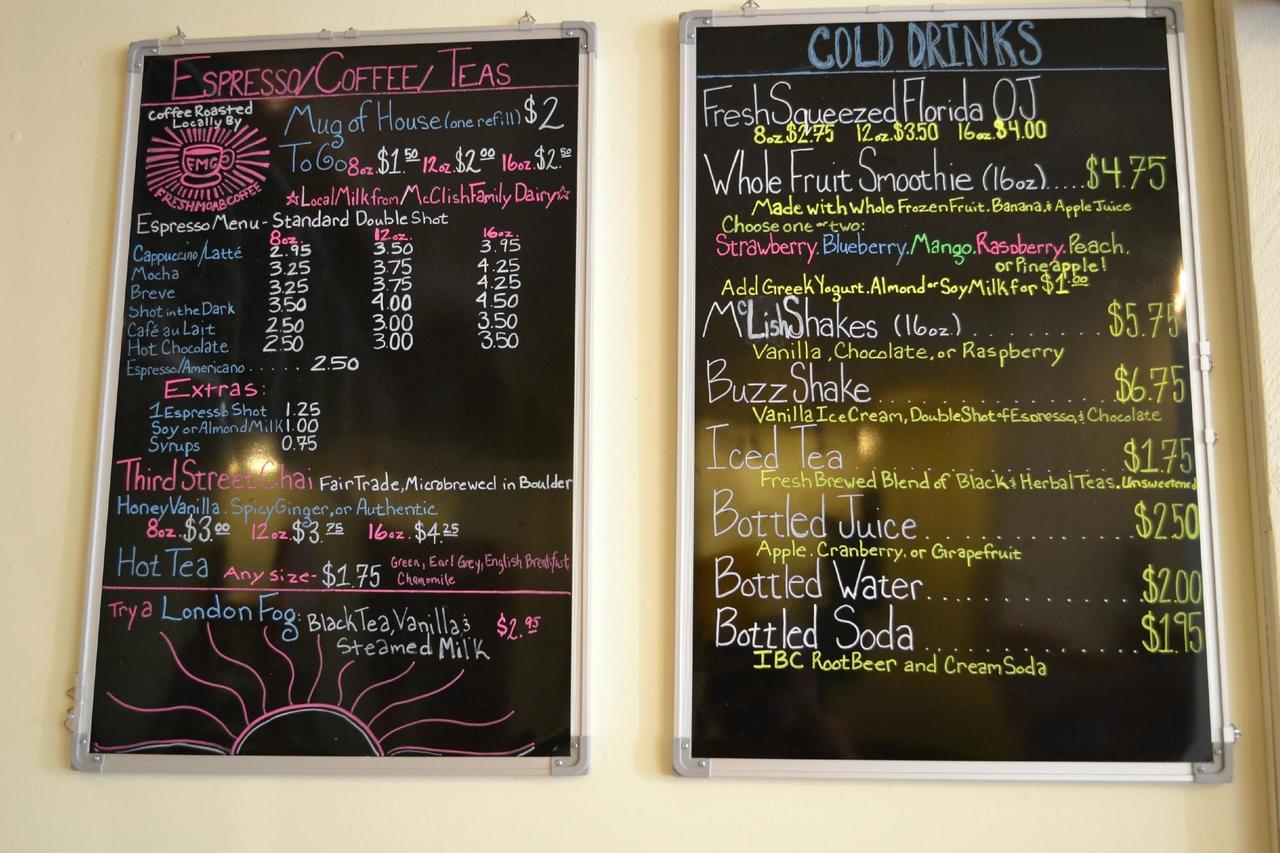 ESPRESSO/COFFEE/TEAS
Coffee Roasted
Locally By
FMC
FRESHMOABCOFFEE
Mug of House (one refill) $2
To Go 8oz. $1.50 12oz. $2.00 16oz. $2.50
☆Local Milk from McClish Family Dairy☆
Espresso Menu - Standard Double Shot
8oz. 12oz. 16oz.
Cappuccino/Latté 2.95 3.50 3.95
Mocha 3.25 3.75 4.25
Breve 3.25 3.75 4.25
Shot in the Dark 3.50 4.00 4.50
Café au Lait 2.50 3.00 3.50
Hot Chocolate 2.50 3.00 3.50
Espresso/Americano ..... 2.50
Extras:
1 Espresso Shot 1.25
Soy or Almond Milk 1.00
Syrups 0.75
Third Street Chai Fair Trade, Microbrewed in Boulder
Honey Vanilla. Spicy Ginger, or Authentic
8oz. $3.00 12oz. $3.75 16oz. $4.25
Hot Tea Any size- $1.75 Green, Earl Grey, English Breakfast
Chamomile
Try a London Fog: Black Tea, Vanilla, & $2.95
Steamed Milk
COLD DRINKS
Fresh Squeezed Florida OJ
8oz. $2.75 12oz. $3.50 16oz. $4.00
Whole Fruit Smoothie (16oz)..... $4.75
Made with Whole Frozen Fruit. Banana, & Apple Juice
Choose one or two:
Strawberry. Blueberry. Mango. Raspberry. Peach.
or Pineapple!
Add Greek Yogurt. Almond or Soy Milk for $1.00
McLish Shakes (16oz.) ........ $5.75
Vanilla, Chocolate, or Raspberry
Buzz Shake ............... $6.75
Vanilla Ice Cream, Double Shot of Espresso, & Chocolate
Iced Tea ................ $1.75
Fresh Brewed Blend of Black & Herbal Teas. Unsweetened
Bottled Juice ............ $2.50
Apple. Cranberry. or Grapefruit
Bottled Water ............ $2.00
Bottled Soda ............ $1.95
IBC Root Beer and Cream Soda